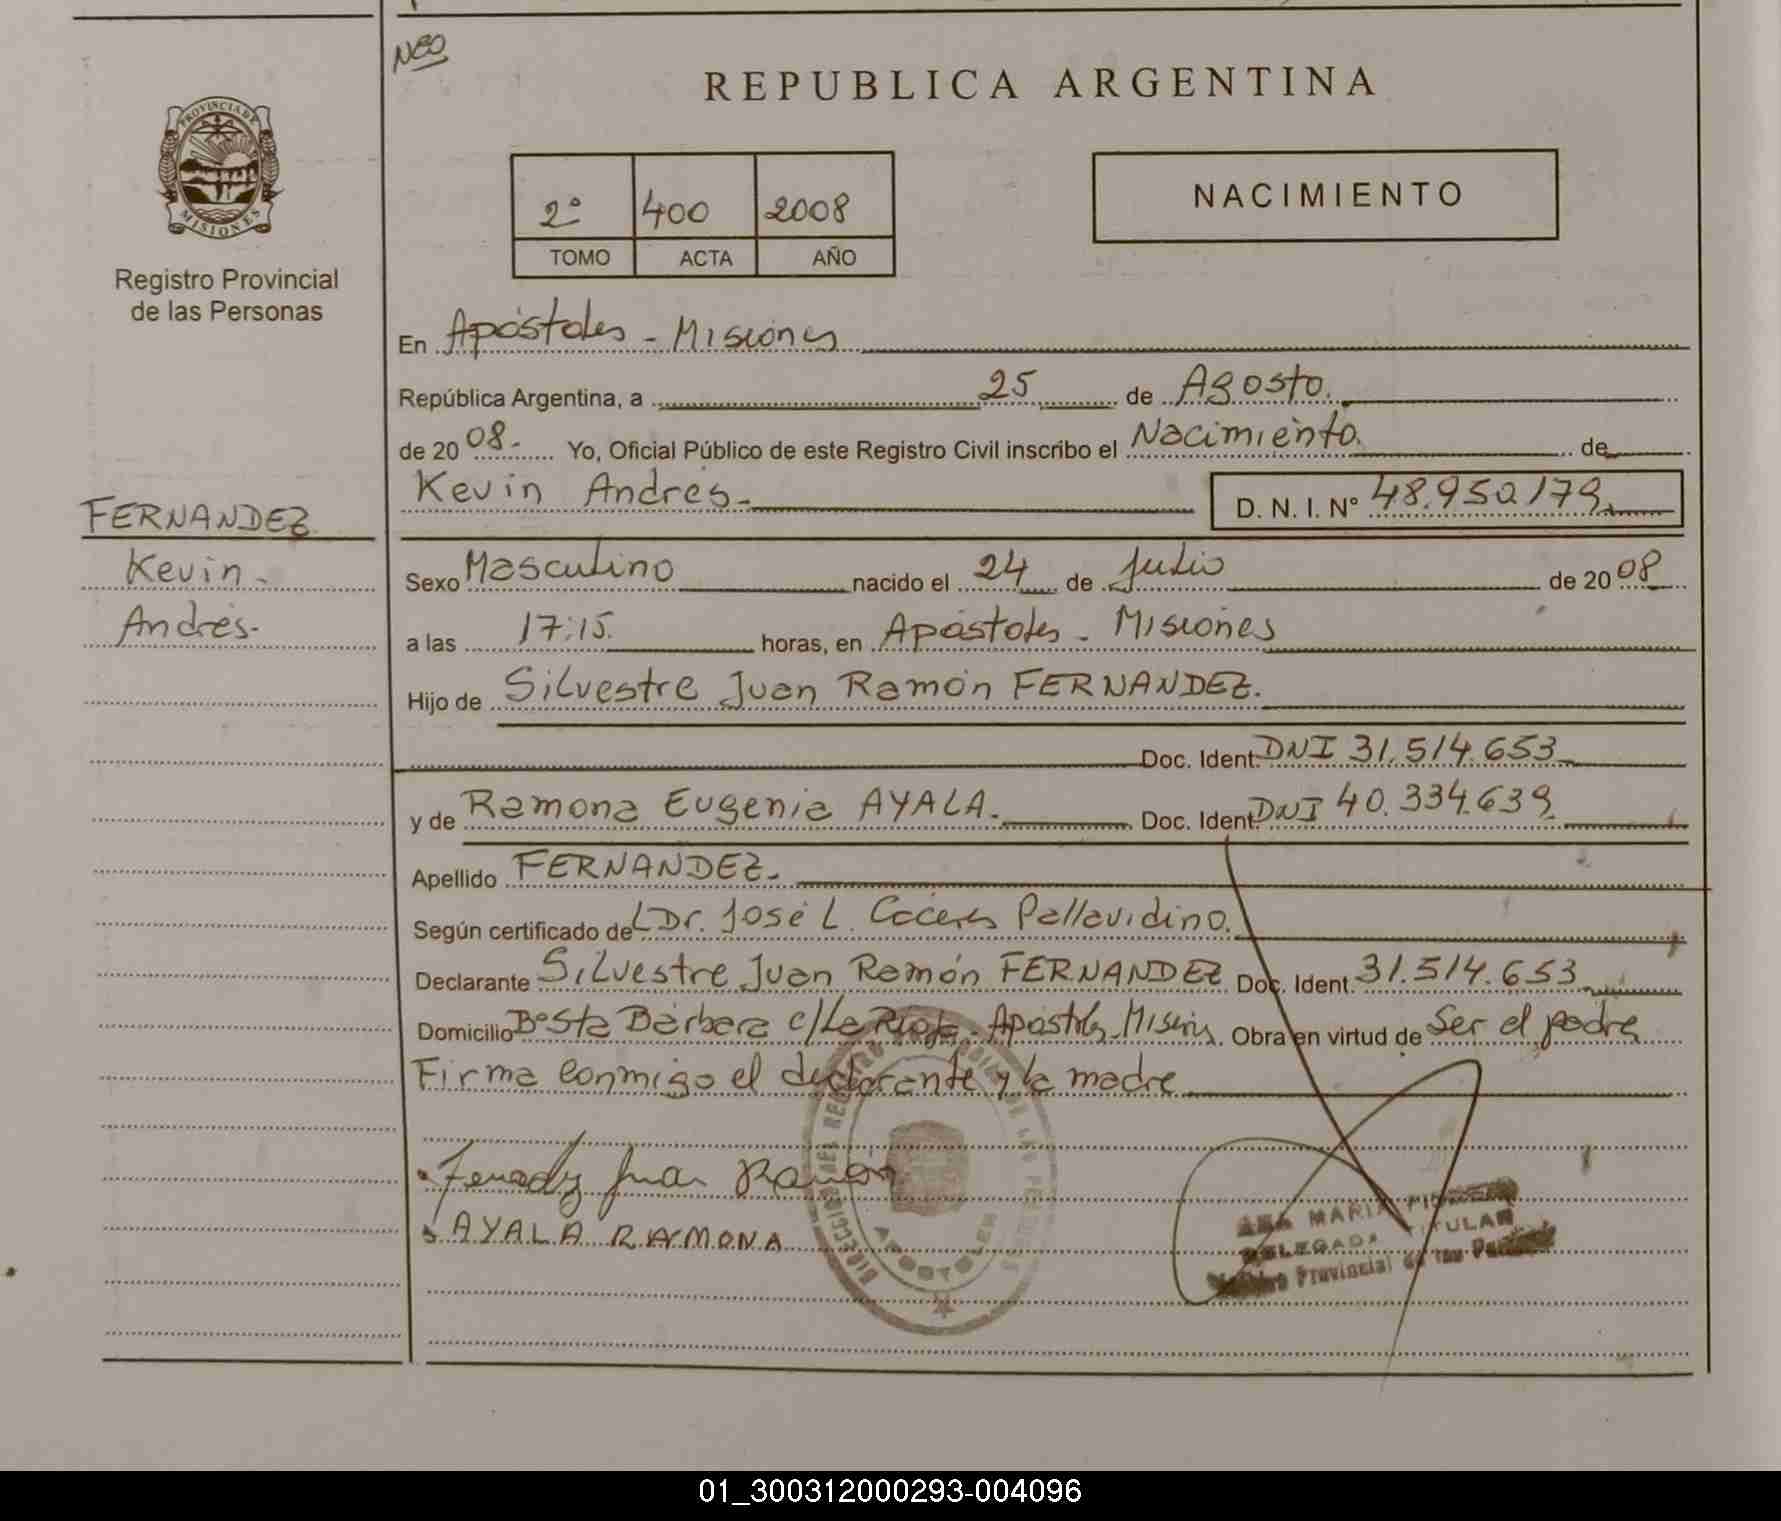 Neo
REPUBLICA ARGENTINA
PROVINCIA DE
MISIONES
Registro Provincial
de las Personas
2º 400 2008
TOMO ACTA AÑO
NACIMIENTO
En Apóstoles - Misiones
República Argentina, a 25 de Agosto.
de 20 08. Yo, Oficial Público de este Registro Civil inscribo el Nacimiento. de
Kevin Andrés.
D. N. I. Nº 48.950.179
FERNANDEZ
Kevin.
Andrés.
Sexo Masculino nacido el 24 de Julio de 20 08
a las 17:15. horas, en Apóstoles - Misiones
Hijo de Silvestre Juan Ramón FERNANDEZ.
Doc. Ident. DNI 31.514.653
y de Ramona Eugenia AYALA. Doc. Ident. DNI 40.334.639.
Apellido FERNANDEZ.
Según certificado de Dr. José L. Cáceres Pallavidino.
Declarante Silvestre Juan Ramón FERNANDEZ Doc. Ident. 31.514.653
Domicilio Bº Sta Bárbara c/La Rioja. Apóstoles, Misiones. Obra en virtud de Ser el padre
Firma conmigo el declarante y la madre
Juan Ramón
AYALA RAMONA
APOSTOLES
MARIA
DELEGADA TITULAR
Provincial de las
01_300312000293-004096